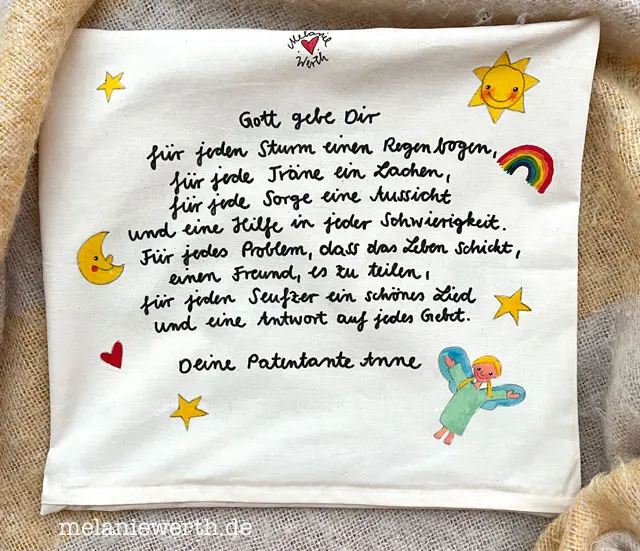 Melanie
Werth
Gott gebe Dir
für jeden Sturm einen Regenbogen,
für jede Träne ein Lachen,
für jede Sorge eine Aussicht
und eine Hilfe in jeder Schwierigkeit.
Für jedes Problem, dass das Leben schickt,
einen Freund, es zu teilen,
für jeden Seufzer ein schönes Lied
und eine Antwort auf jedes Gebet.
Deine Patentante Anne
melaniewerth.de